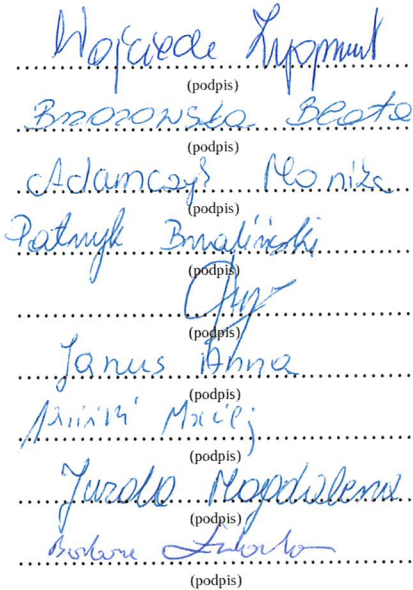 Wojciech Zygmunt
(podpis)
Brzozowska Beata
(podpis)
Adamczyk Monika
(podpis)
Patryk
(podpis)
(podpis)
Janus Anna
(podpis)
Maciej
(podpis)
Magdalena
(podpis)
Barbara
(podpis)